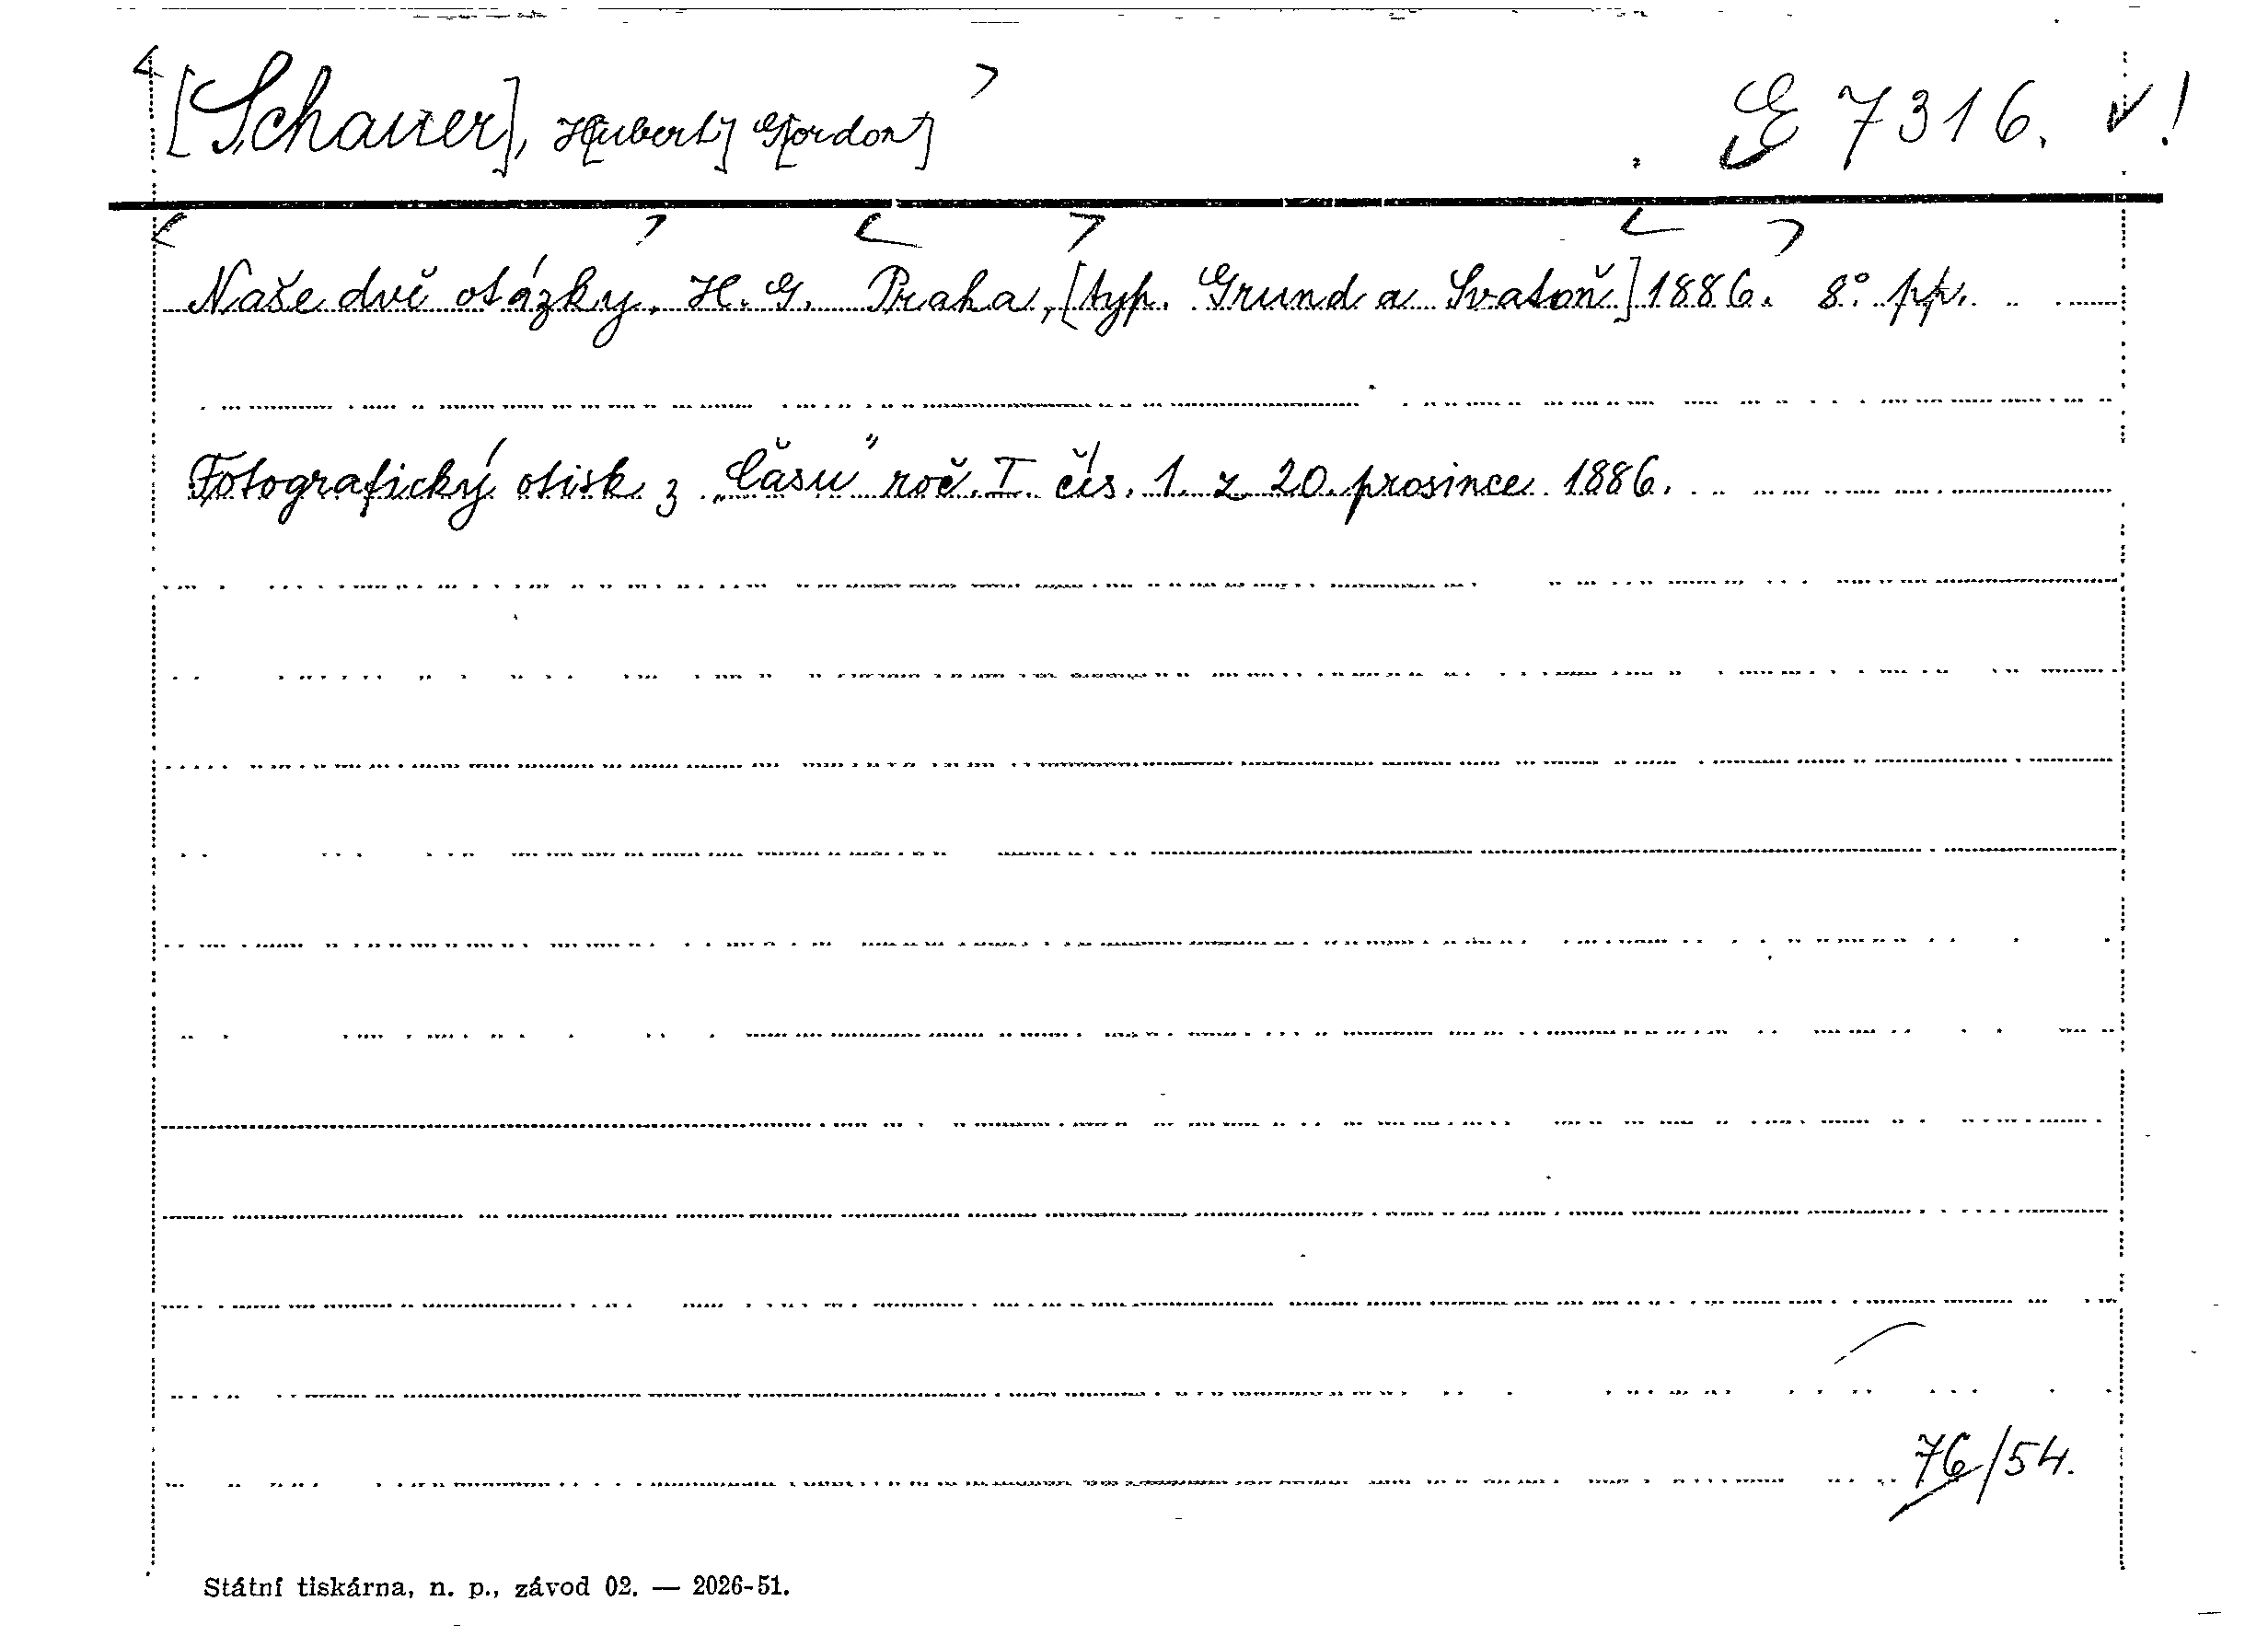 [Schauer], H[ubert] G[ordon] E 7316. !
Naše dvě otázky. H. G. Praha, [typ. Grund a Svatoň] 1886. 8° pp.
Fotografický otisk z „Času" roč. I. čís. 1. z 20. prosince 1886.
76/54.
Státní tiskárna, n. p., závod 02. — 2026-51.